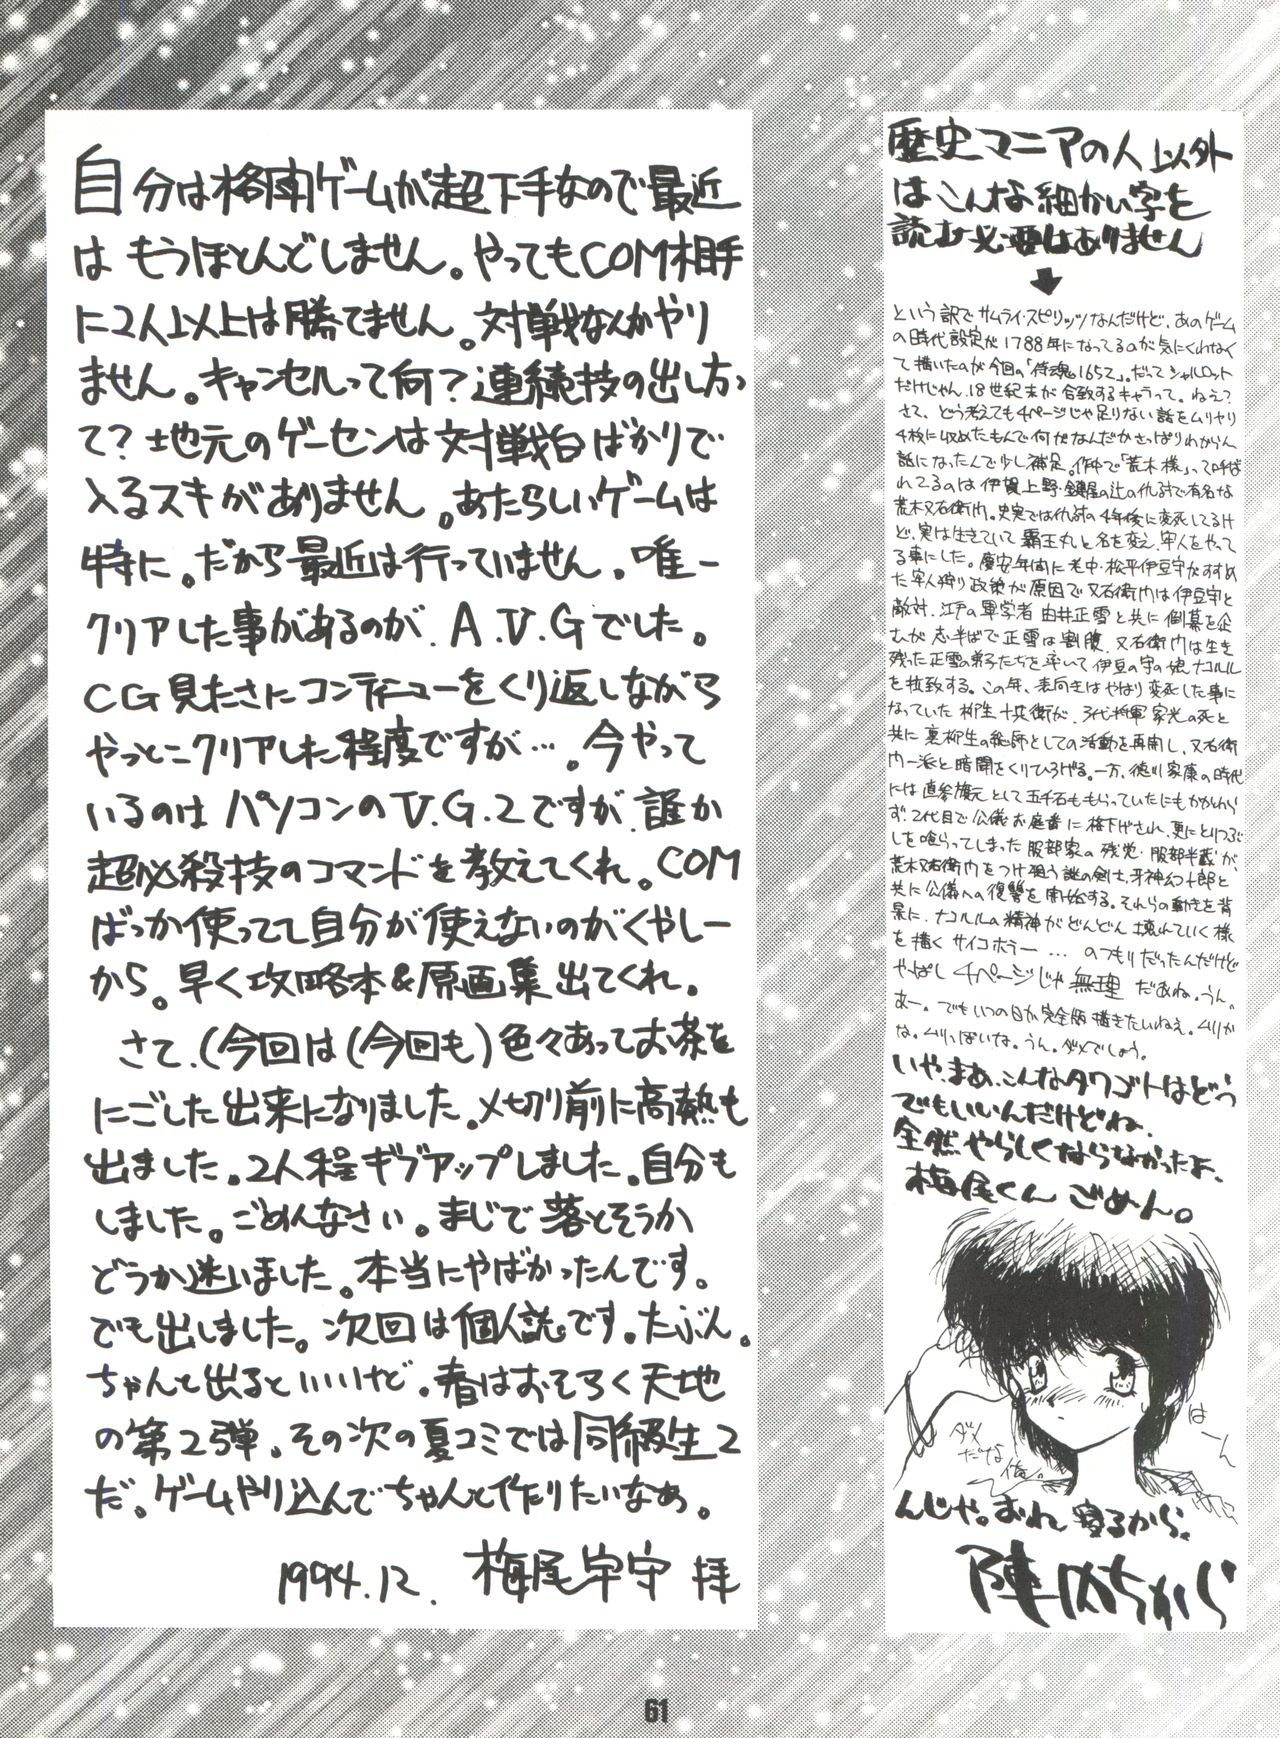 自分は格闘ゲームが超下手なので最近
は もうほとんどしません。やってもCOM相手
に2人以上は勝てません。対戦なんかやり
ません。キャンセルって何？連続技の出し方っ
て？地元のゲーセンは対戦台ばかりで
入るスキがありません。あたらしいゲームは
特に。だから最近は行っていません。唯一
クリアした事があるのが、A.V.Gでした。
CG見たさにコンティニューをくり返しながら
やっとこクリアした程度ですが…。今やって
いるのは パソコンのV.G.2ですが、誰か
超必殺技のコマンドを教えてくれ。COM
ばっか使ってて自分が使えないのがくやしー
から。早く攻略本&原画集出てくれ。
さて、(今回は(今回も)色々あってお茶を
にごした出来になりました。〆切り前に高熱も
出ました。2人程ギブアップしました。自分も
しました。ごめんなさい。まじで落とそうか
どうか迷いました。本当にやばかったんです。
でも出しました。次回は個人誌です。たぶん。
ちゃんと出るといいけど。春はおそらく天地
の第2弾。その次の夏コミでは同級生2
だ。ゲームやり込んでちゃんと作りたいなぁ。
1994.12. 梅尾宇守 拝
歴史マニアの人以外
はこんな細かい字を
読む必要はありません
という訳でサムライ・スピリッツなんだけど、あのゲーム
の時代設定が1788年になってるのが気にくわなく
て描いたのが今回の「侍魂1652」。だってシャルロット
だけじゃん、18世紀末が合致するキャラって。ねぇ？
さて、どう考えても4ページじゃ足りない話をムリヤリ
4枚に収めたもんで何がなんだかさっぱりわからん
話になったんで少し補足。作中で「荒木様」って呼ば
れてるのは伊賀上野・鍵屋の辻の仇討で有名な
荒木又右衛門。史実では仇討の4年後に変死してるけ
ど、実は生きていて覇王丸と名を変え、牢人をやって
る事にした。慶安年間に老中・松平伊豆守がすすめ
た牢人狩り政策が原因で又右衛門は伊豆守と
敵対、江戸の軍学者由井正雪と共に倒幕を企
むが志半ばで正雪は割腹、又右衛門は生き
残った正雪の弟子たちを率いて伊豆の守の娘、ナコルル
を拉致する。この年、表向きはやはり変死した事に
なっていた柳生十兵衛が、3代将軍家光の死と
共に裏柳生の総師としての活動を再開し、又右衛
門一派と暗闘をくりひろげる。一方、徳川家康の時代
には直参旗元として五千石ももらっていたにもかかわら
ず、2代目で公儀お庭番に格下げされ、更にとりつぶ
しを喰らってしまった服部家の残党・服部半蔵が、
荒木又右衛門をつけ狙う謎の剣士、牙神幻十郎と
共に公儀への復讐を開始する。それらの動きを背
景に、ナコルルの精神がどんどん壊れていく様
を描くサイコホラー… のつもりだったんだけど
やっぱし4ページじゃ無理だぁね。うん。
あー。でもいつの日か完全版描きたいねぇ。ムリか
な。ムリっぽいな。うん。ダメでしょう。
いや、まぁ、こんなタワゴトはどう
でもいいんだけどね、
全然やらしくならなかったよ、
梅尾くんごめん。
ダメ
だな
俺。
はーん
んじゃ。おれ 寝るから。